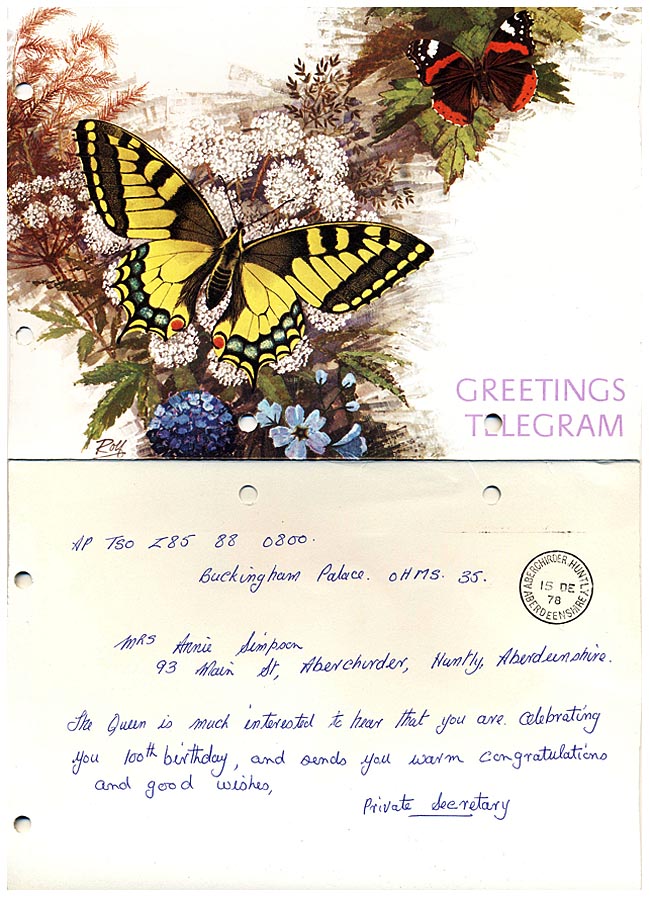 GREETINGS
TELEGRAM
Rolf
AP TSO Z85 88 0800.
Buckingham Palace. OHMS. 35.
ABERCHIRDER, HUNTLY
15 DE
78
ABERDEENSHIRE
Mrs Annie Simpson
93 Main St, Aberchirder, Huntly, Aberdeenshire.
The Queen is much interested to hear that you are celebrating
you 100th birthday, and sends you warm congratulations
and good wishes,
Private Secretary